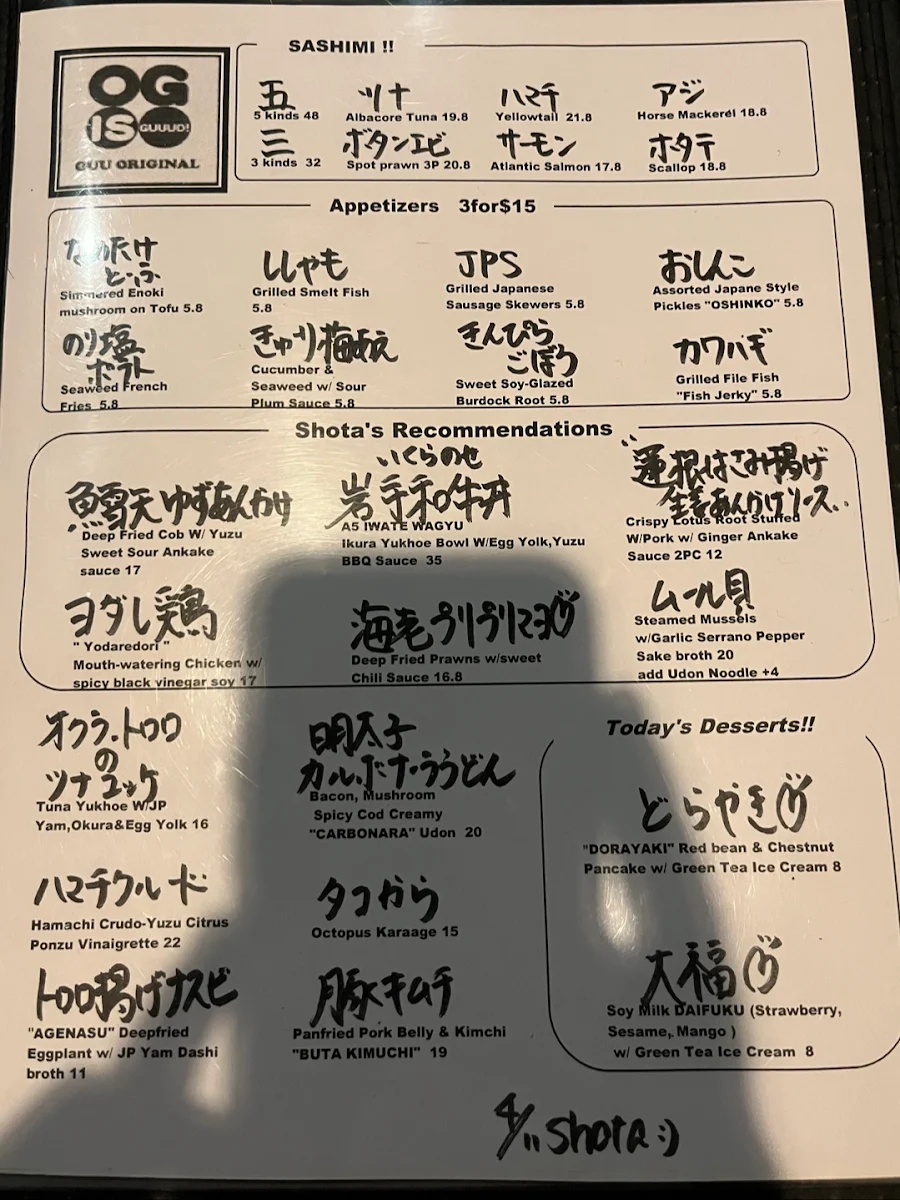 OG
IS GUUUD!
GUU ORIGINAL
SASHIMI !!
五
5 kinds 48
ツナ
Albacore Tuna 19.8
ハマチ
Yellowtail 21.8
アジ
Horse Mackerel 18.8
三
3 kinds 32
ボタンエビ
Spot prawn 3P 20.8
サーモン
Atlantic Salmon 17.8
ホタテ
Scallop 18.8
Appetizers 3for$15
なめたけ
とーふ
Simmered Enoki
mushroom on Tofu 5.8
ししゃも
Grilled Smelt Fish
5.8
JPS
Grilled Japanese
Sausage Skewers 5.8
おしんこ
Assorted Japane Style
Pickles "OSHINKO" 5.8
のり塩
ポテト
Seaweed French
Fries 5.8
きゅーり梅あえ
Cucumber &
Seaweed w/ Sour
Plum Sauce 5.8
きんぴら
ごぼう
Sweet Soy-Glazed
Burdock Root 5.8
カワハギ
Grilled File Fish
"Fish Jerky" 5.8
Shota's Recommendations
鱈天ゆずあんかけ
Deep Fried Cob W/ Yuzu
Sweet Sour Ankake
sauce 17
いくらのせ
岩手和牛丼
A5 IWATE WAGYU
Ikura Yukhoe Bowl W/Egg Yolk,Yuzu
BBQ Sauce 35
蓮根はさみ揚げ
生姜あんかけソース..
Crispy Lotus Root Stuffed
W/Pork w/ Ginger Ankake
Sauce 2PC 12
ヨダレ鶏
" Yodaredori "
Mouth-watering Chicken w/
spicy black vinegar soy 17
海老プリプリマヨ
Deep Fried Prawns w/sweet
Chili Sauce 16.8
ムール貝
Steamed Mussels
w/Garlic Serrano Pepper
Sake broth 20
add Udon Noodle +4
オクラ.トロロ
の
ツナユッケ
Tuna Yukhoe W/JP
Yam,Okura&Egg Yolk 16
明太子
カルボナーラうどん
Bacon, Mushroom
Spicy Cod Creamy
"CARBONARA" Udon 20
ハマチクルード
Hamachi Crudo-Yuzu Citrus
Ponzu Vinaigrette 22
タコから
Octopus Karaage 15
トロロ揚げナスビ
"AGENASU" Deepfried
Eggplant w/ JP Yam Dashi
broth 11
豚キムチ
Panfried Pork Belly & Kimchi
"BUTA KIMUCHI" 19
Today's Desserts!!
どらやき
"DORAYAKI" Red bean & Chestnut
Pancake w/ Green Tea Ice Cream 8
大福
Soy Milk DAIFUKU (Strawberry,
Sesame, Mango )
w/ Green Tea Ice Cream 8
4/11 Shota :)